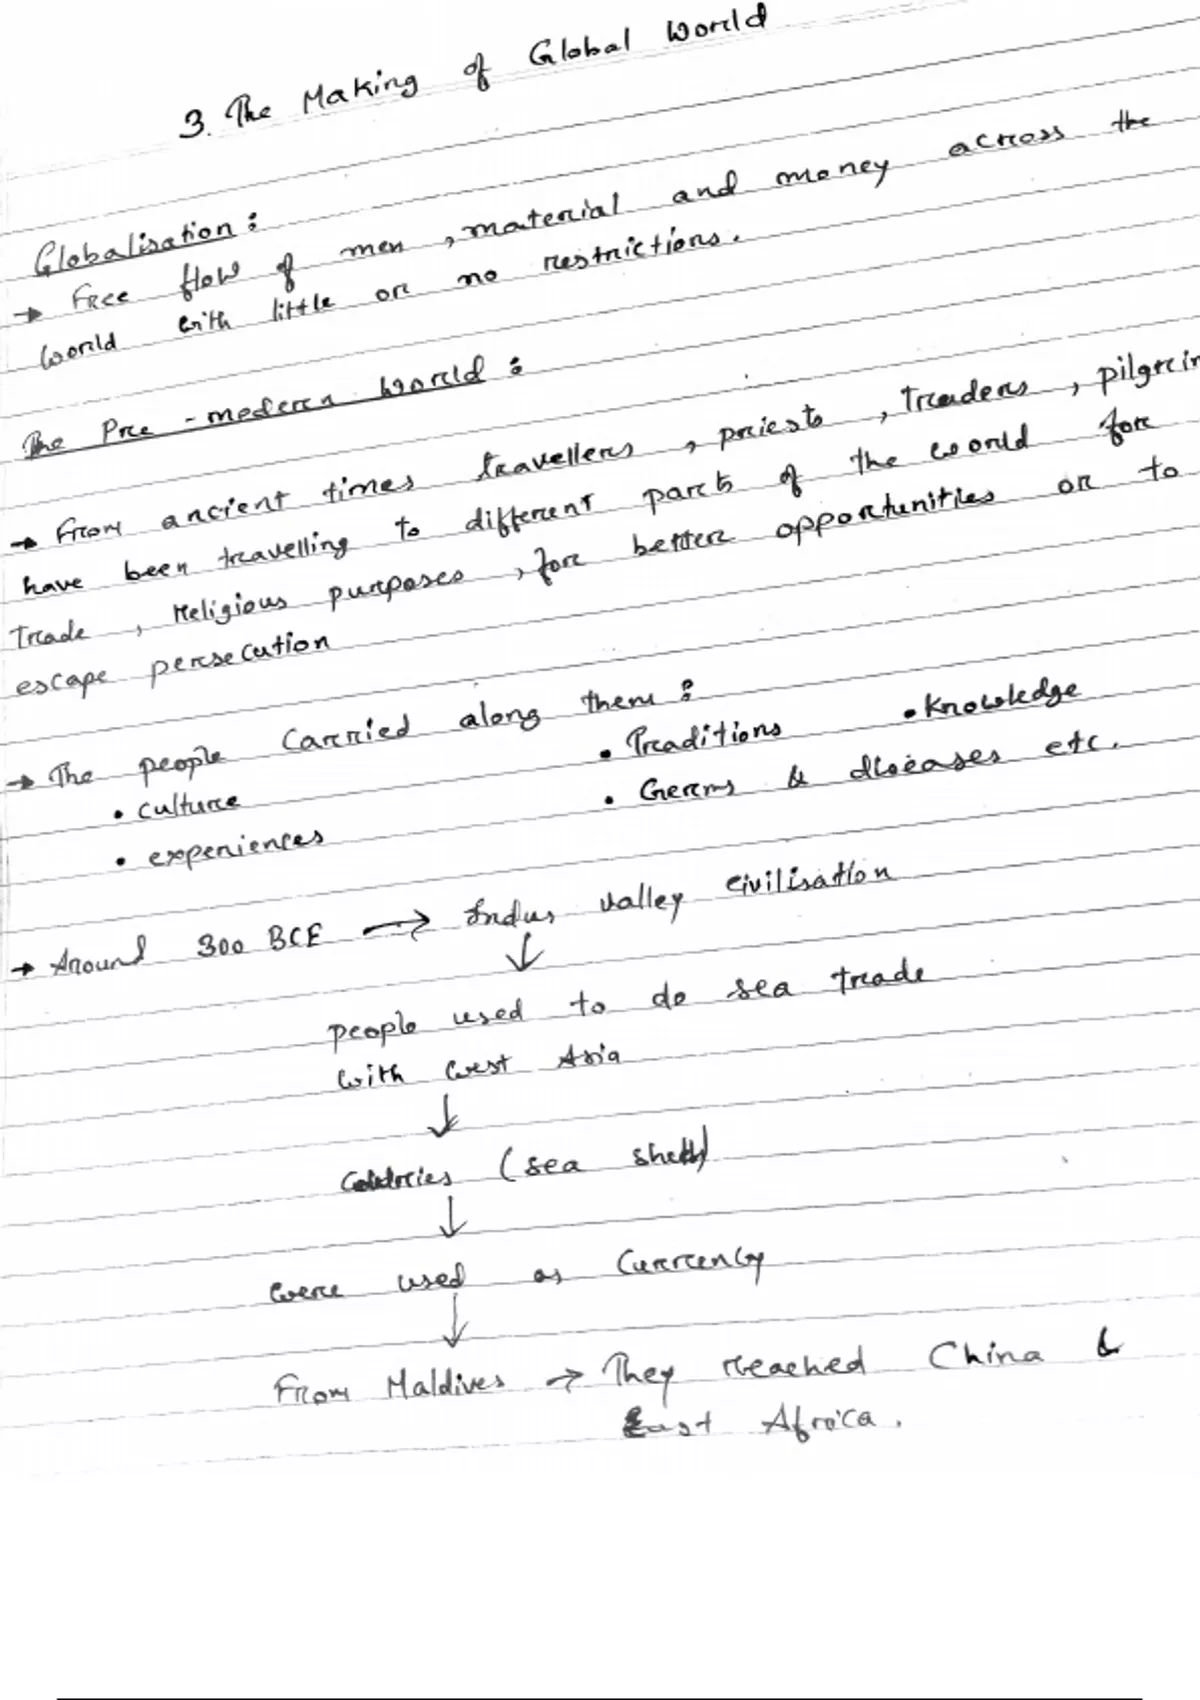 3. The Making of Global World
Globalisation :
→ Free flow of men, material and money across the
world with little or no restrictions.
The Pre-modern World :
→ From ancient times travellers, priests, Traders, pilgrim
have been travelling to different parts of the world for
Trade, religious purposes, for better opportunities or to
escape persecution
→ The people Carried along them :
• culture • Traditions • Knowledge
• experiences • Germs & diseases etc.
→ Around 300 BCE → Indus valley civilisation
↓
people used to do sea trade
with West Asia
↓
(sea shells)
↓
were used as Currency
↓
From Maldives → They reached China &
East Africa.